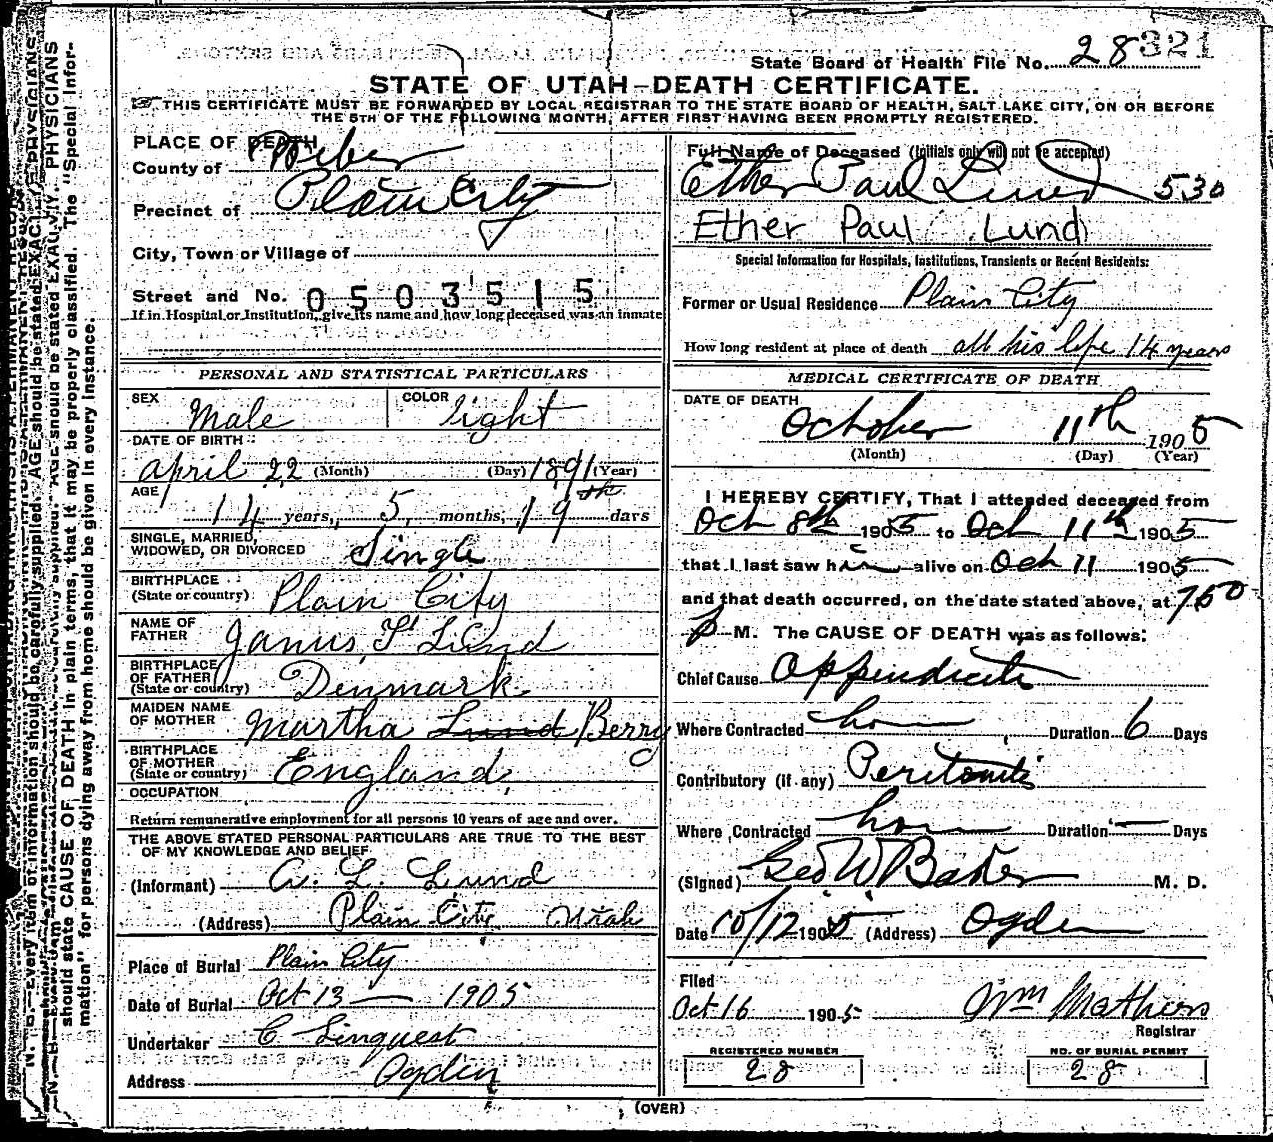 State Board of Health File No. 28 321
STATE OF UTAH-DEATH CERTIFICATE.
THIS CERTIFICATE MUST BE FORWARDED BY LOCAL REGISTRAR TO THE STATE BOARD OF HEALTH, SALT LAKE CITY, ON OR BEFORE
THE 5TH OF THE FOLLOWING MONTH, AFTER FIRST HAVING BEEN PROMPTLY REGISTERED.
PLACE OF DEATH
County of Weber
Precinct of Plain City
City, Town or Village of
Street and No. 0503515
If in Hospital or Institution, give its name and how long deceased was an inmate
PERSONAL AND STATISTICAL PARTICULARS
SEX Male COLOR light
DATE OF BIRTH
April 22 (Month) (Day) 1891 (Year)
AGE
14 years, 5 months, 19th days
SINGLE, MARRIED,
WIDOWED, OR DIVORCED Single
BIRTHPLACE
(State or country) Plain City
NAME OF
FATHER Janus F Lund
BIRTHPLACE
OF FATHER
(State or country) Denmark
MAIDEN NAME
OF MOTHER Martha Lund Berry
BIRTHPLACE
OF MOTHER
(State or country) England
OCCUPATION
Return remunerative employment for all persons 10 years of age and over.
THE ABOVE STATED PERSONAL PARTICULARS ARE TRUE TO THE BEST
OF MY KNOWLEDGE AND BELIEF
(Informant) C. L. Lund
(Address) Plain City Utah
Place of Burial Plain City
Date of Burial Oct 13 — 1905
Undertaker C Linquest
Address Ogden
Full Name of Deceased (Initials only will not be accepted)
Ether Paul Lund 530
Ether Paul Lund
Special Information for Hospitals, Institutions, Transients or Recent Residents:
Former or Usual Residence Plain City
How long resident at place of death all his life 14 years
MEDICAL CERTIFICATE OF DEATH
DATE OF DEATH
October 11th 1905
(Month) (Day) (Year)
I HEREBY CERTIFY, That I attended deceased from
Oct 8th 1905 to Oct 11th 1905
that I last saw him alive on Oct 11 1905
and that death occurred, on the date stated above, at 7.50
P M. The CAUSE OF DEATH was as follows:
Chief Cause Appendicitis
Where Contracted home Duration 6 Days
Contributory (if any) Peritonitis
Where Contracted home Duration — Days
(Signed) Geo W Baker M. D.
Date 10/12 1905 (Address) Ogden
Filed
Oct 16 1905 Wm Mathers
Registrar
REGISTERED NUMBER
28
NO. OF BURIAL PERMIT
28
(OVER)
N. B.—Every item of information should be carefully supplied. AGE should be stated EXACTLY. PHYSICIANS
should state CAUSE OF DEATH in plain terms, that it may be properly classified. The "Special Infor-
mation" for persons dying away from home should be given in every instance.